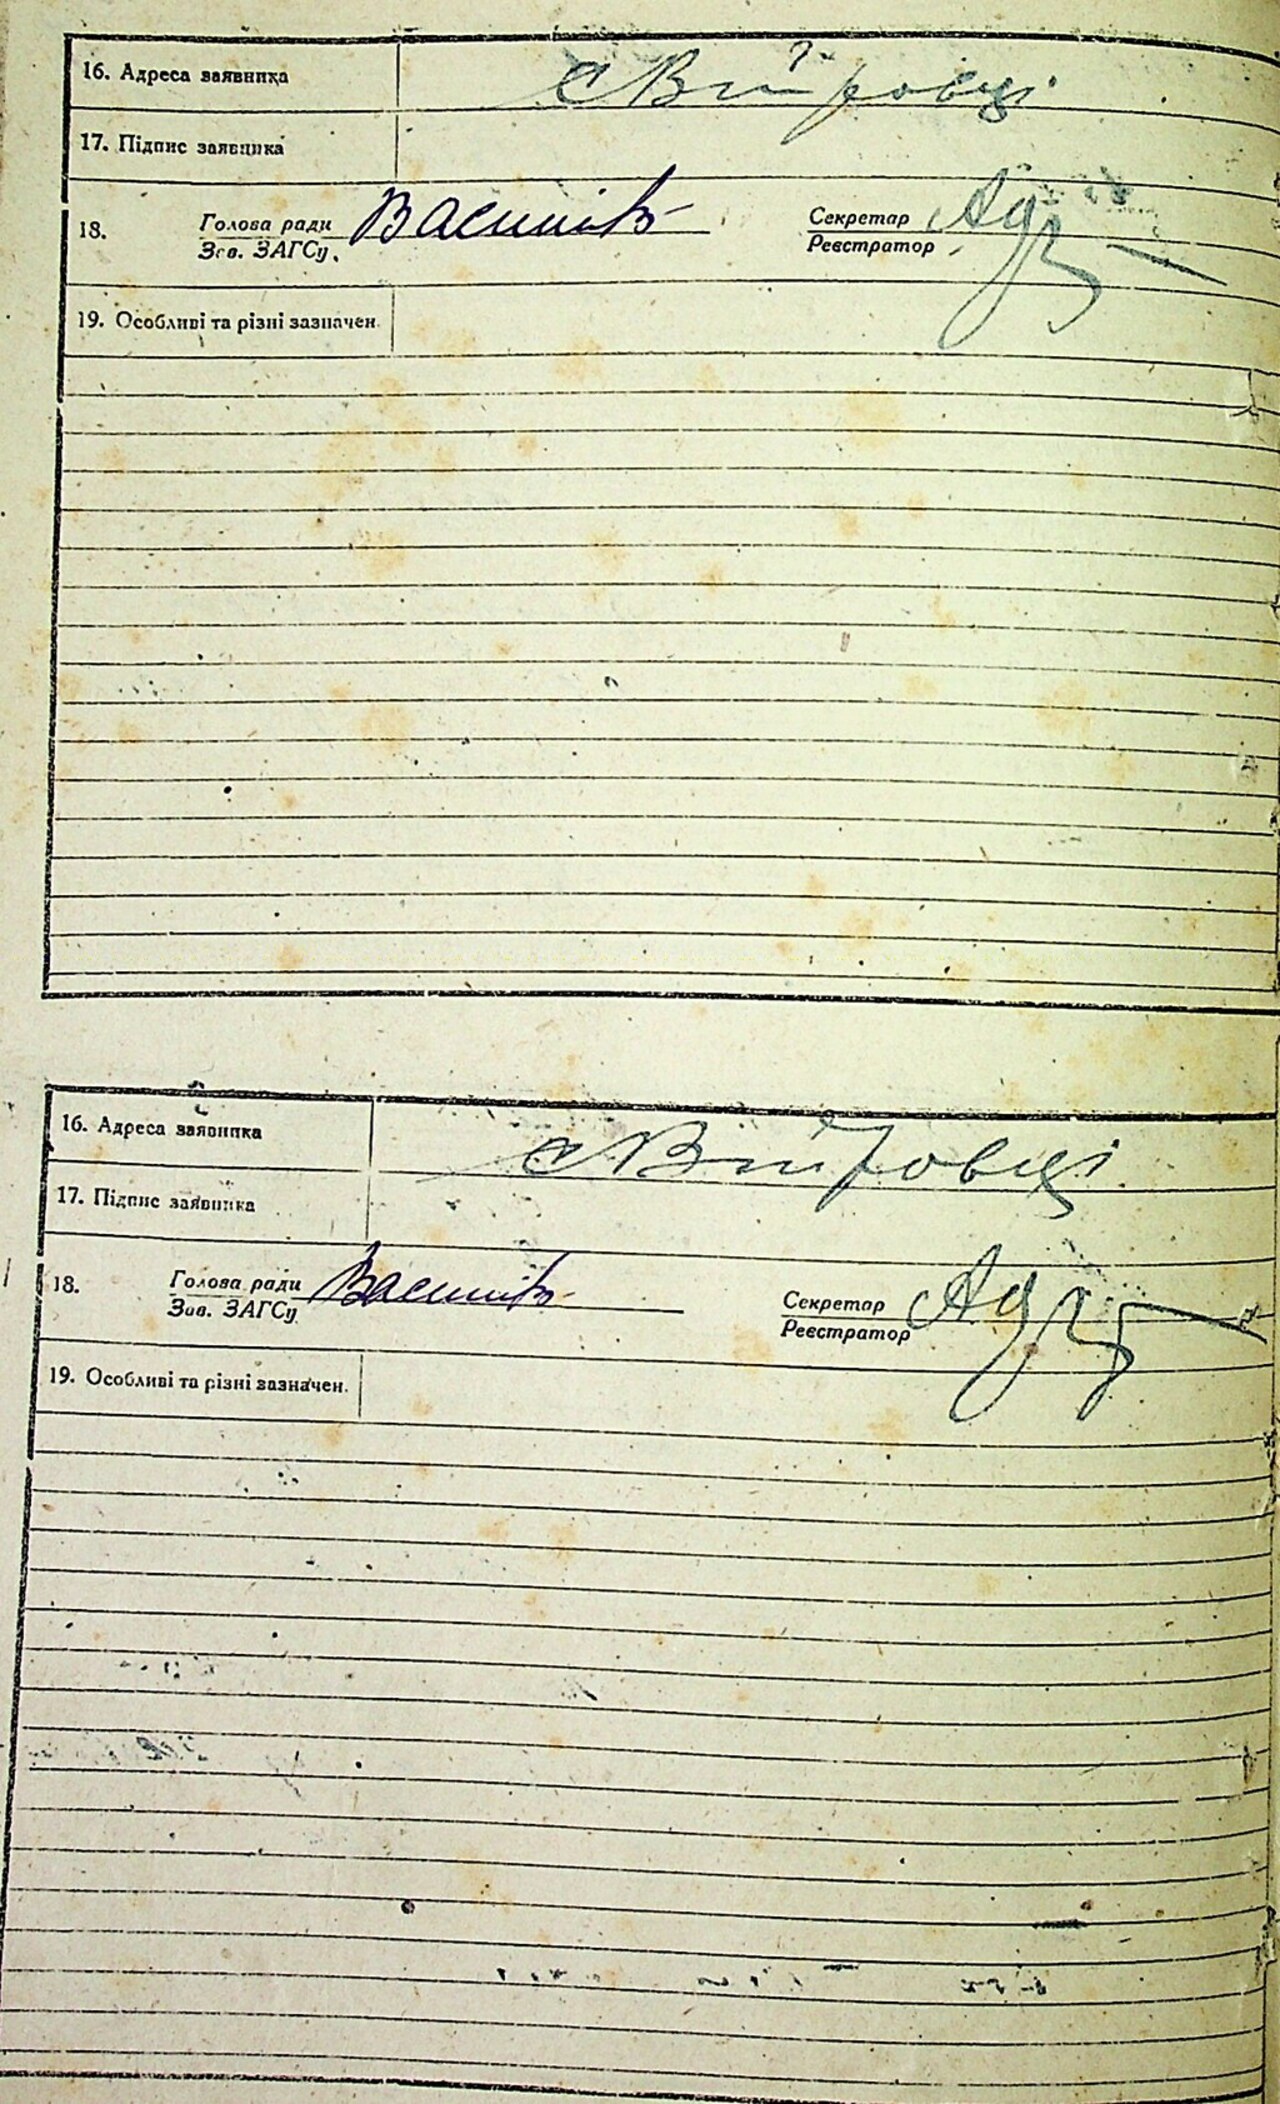 16. Адреса заявника с Вітровці
17. Підпис заявника
18. Голова ради Васильків Секретар
Зав. ЗАГСу. Реєстратор
19. Особливі та різні зазначен.
16. Адреса заявника с Вітровці
17. Підпис заявника
18. Голова ради Васильків Секретар
Зав. ЗАГСу Реєстратор
19. Особливі та різні зазначен.